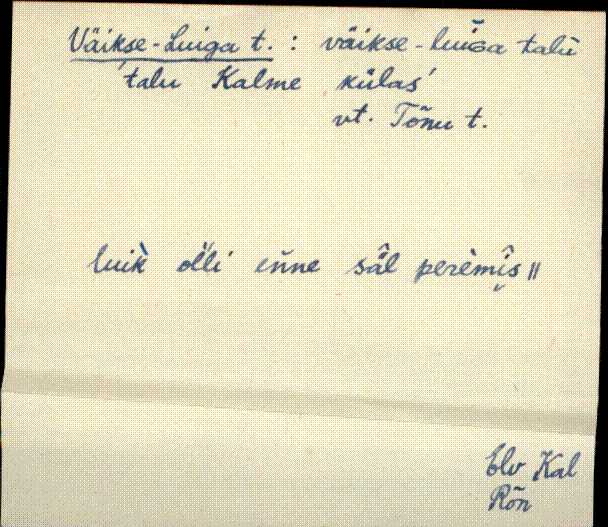 Väikse-Luiga t. : väikse-luiGa talu
'talu Kalme külas'
vt. Tõnu t.
luik̀ olli enne säl perèmîs ||
Elv Kal
Rõn